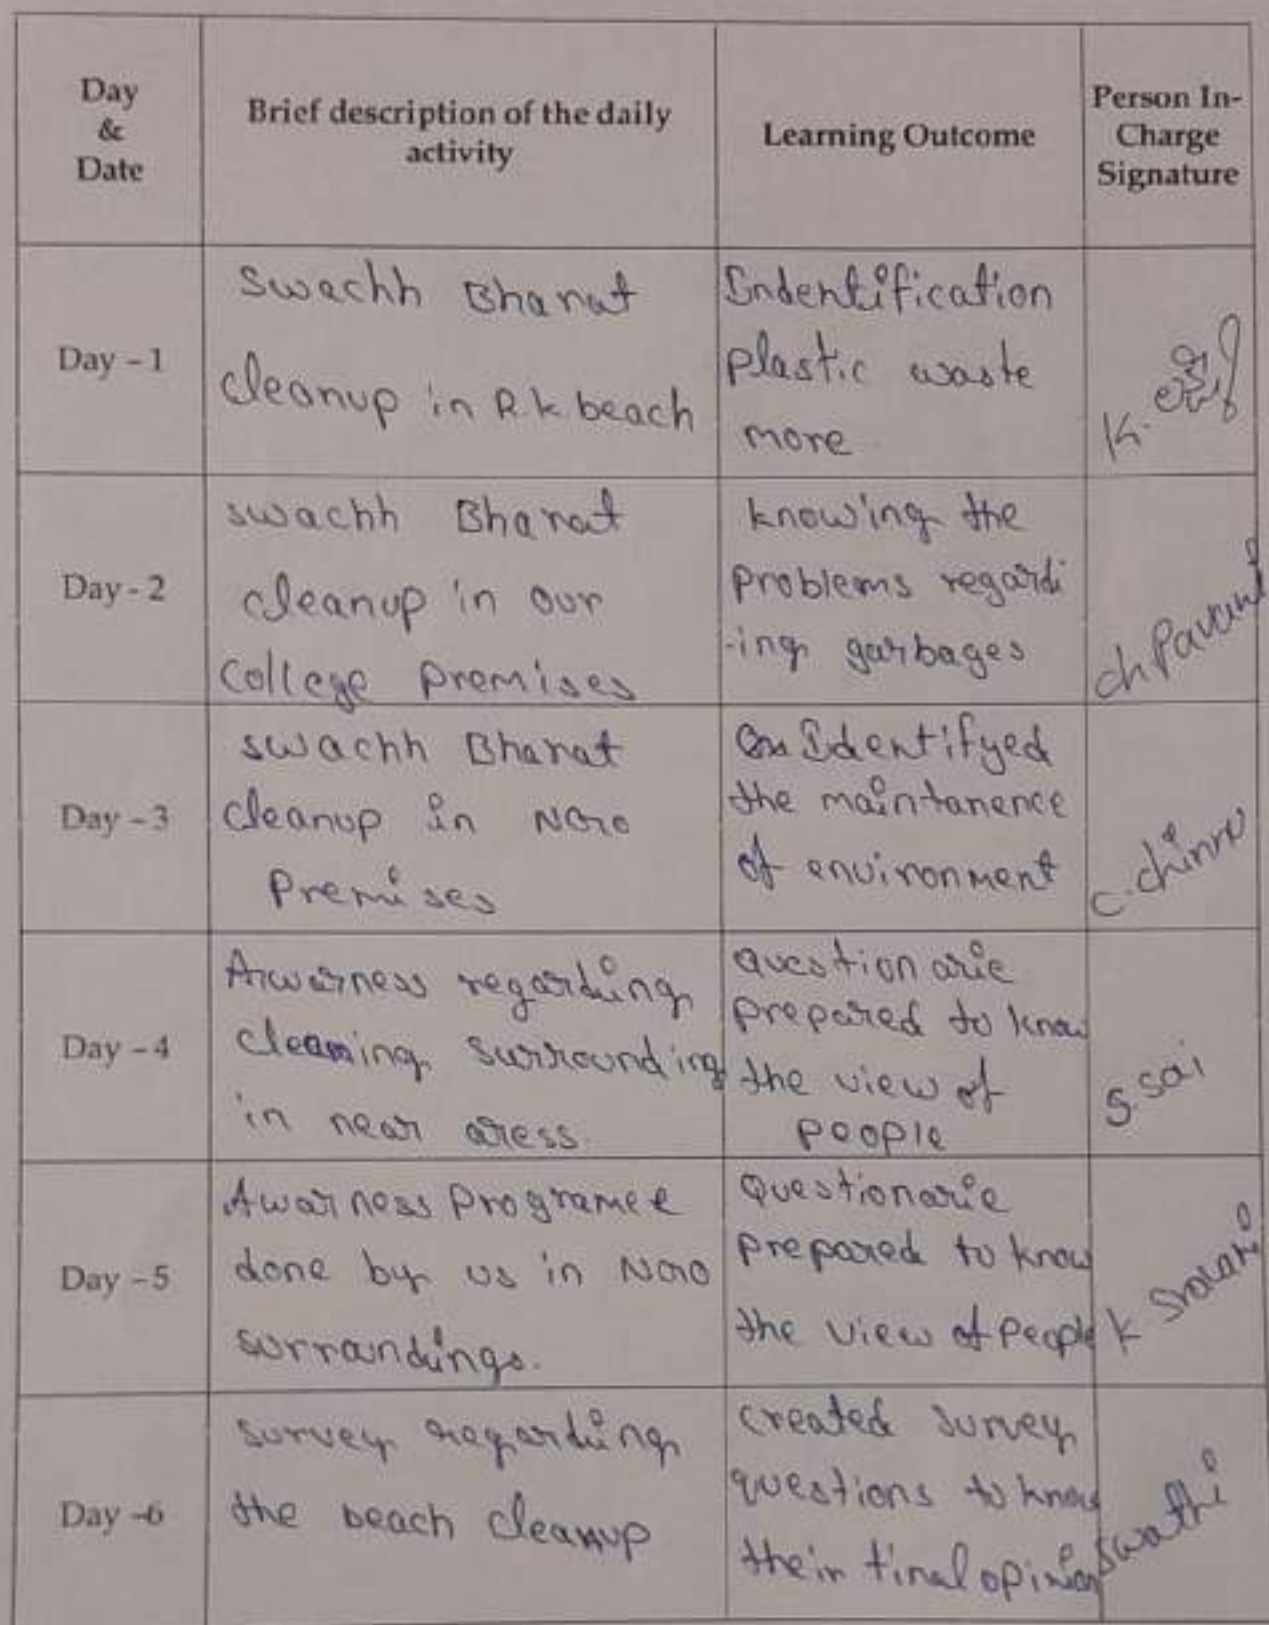 Day
&
Date
Brief description of the daily
activity
Learning Outcome
Person In-
Charge
Signature
Day – 1
Swachh Bharat
cleanup in R.k beach
Indentification
plastic waste
more.
K.
Day - 2
swachh Bharat
cleanup in our
College premises
knowing the
problems regardi
-ing garbages
ch Pavani
Day – 3
swachh Bharat
cleanup in NGO
premises
Identifyed
the maintanence
of environment
c. chinni
Day – 4
Awarness regarding
cleaning surrounding
in near aress.
Questionarie
prepared to know
the view of
people
S. Sai
Day – 5
Awarness programee
done by us in NGO
surrandings.
Questionarie
prepared to know
the view of people
K Sravani
Day –6
survey regarding
the beach cleanup
created survey
questions to know
their final opinion
swathi